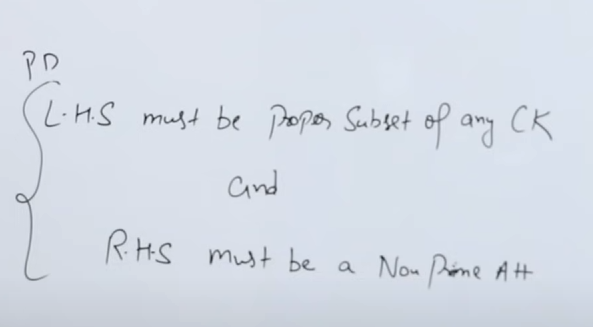 PD
L.H.S must be Proper Subset of any CK
and
R.H.S must be a Non Prime Att